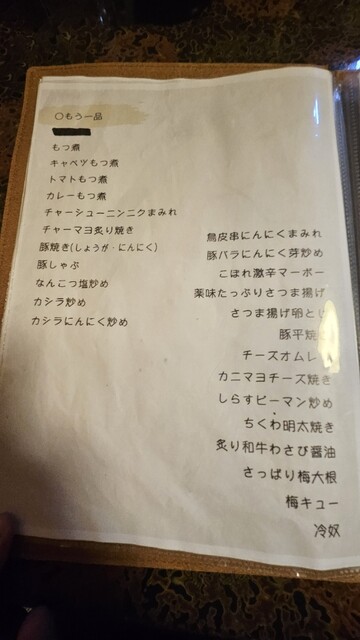 〇もう一品
もつ煮
キャベツもつ煮
トマトもつ煮
カレーもつ煮
チャーシューニンニクまみれ
チャーマヨ炙り焼き
豚焼き(しょうが・にんにく)
豚しゃぶ
なんこつ塩炒め
カシラ炒め
カシラにんにく炒め
鳥皮串にんにくまみれ
豚バラにんにく芽炒め
こぼれ激辛マーボー
薬味たっぷりさつま揚げ
さつま揚げ卵とじ
豚平焼
チーズオムレ
カニマヨチーズ焼き
しらすピーマン炒め
ちくわ明太焼き
炙り和牛わさび醤油
さっぱり梅大根
梅キュー
冷奴